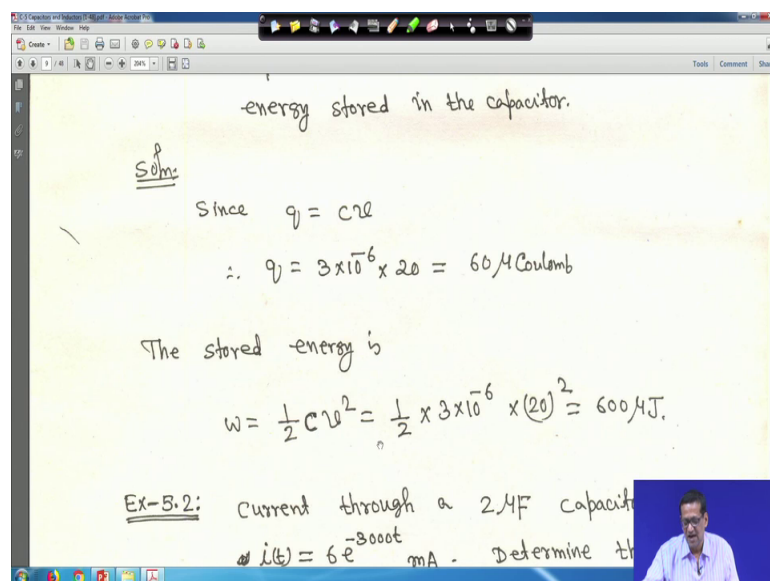 C-3 Capacitors and Inductors (1-48).pdf - Adobe Acrobat Pro
File Edit View Window Help
Create
9 / 48 204% Tools Comment
energy stored in the capacitor.
Soln:
Since q = cv
∴ q = 3×10⁻⁶ × 20 = 60 μCoulomb
The stored energy is
w = 1/2 cv² = 1/2 × 3×10⁻⁶ × (20)² = 600 μJ.
Ex-5.2: Current through a 2 μF
i(t) = 6e⁻³⁰⁰⁰ᵗ mA. Determine